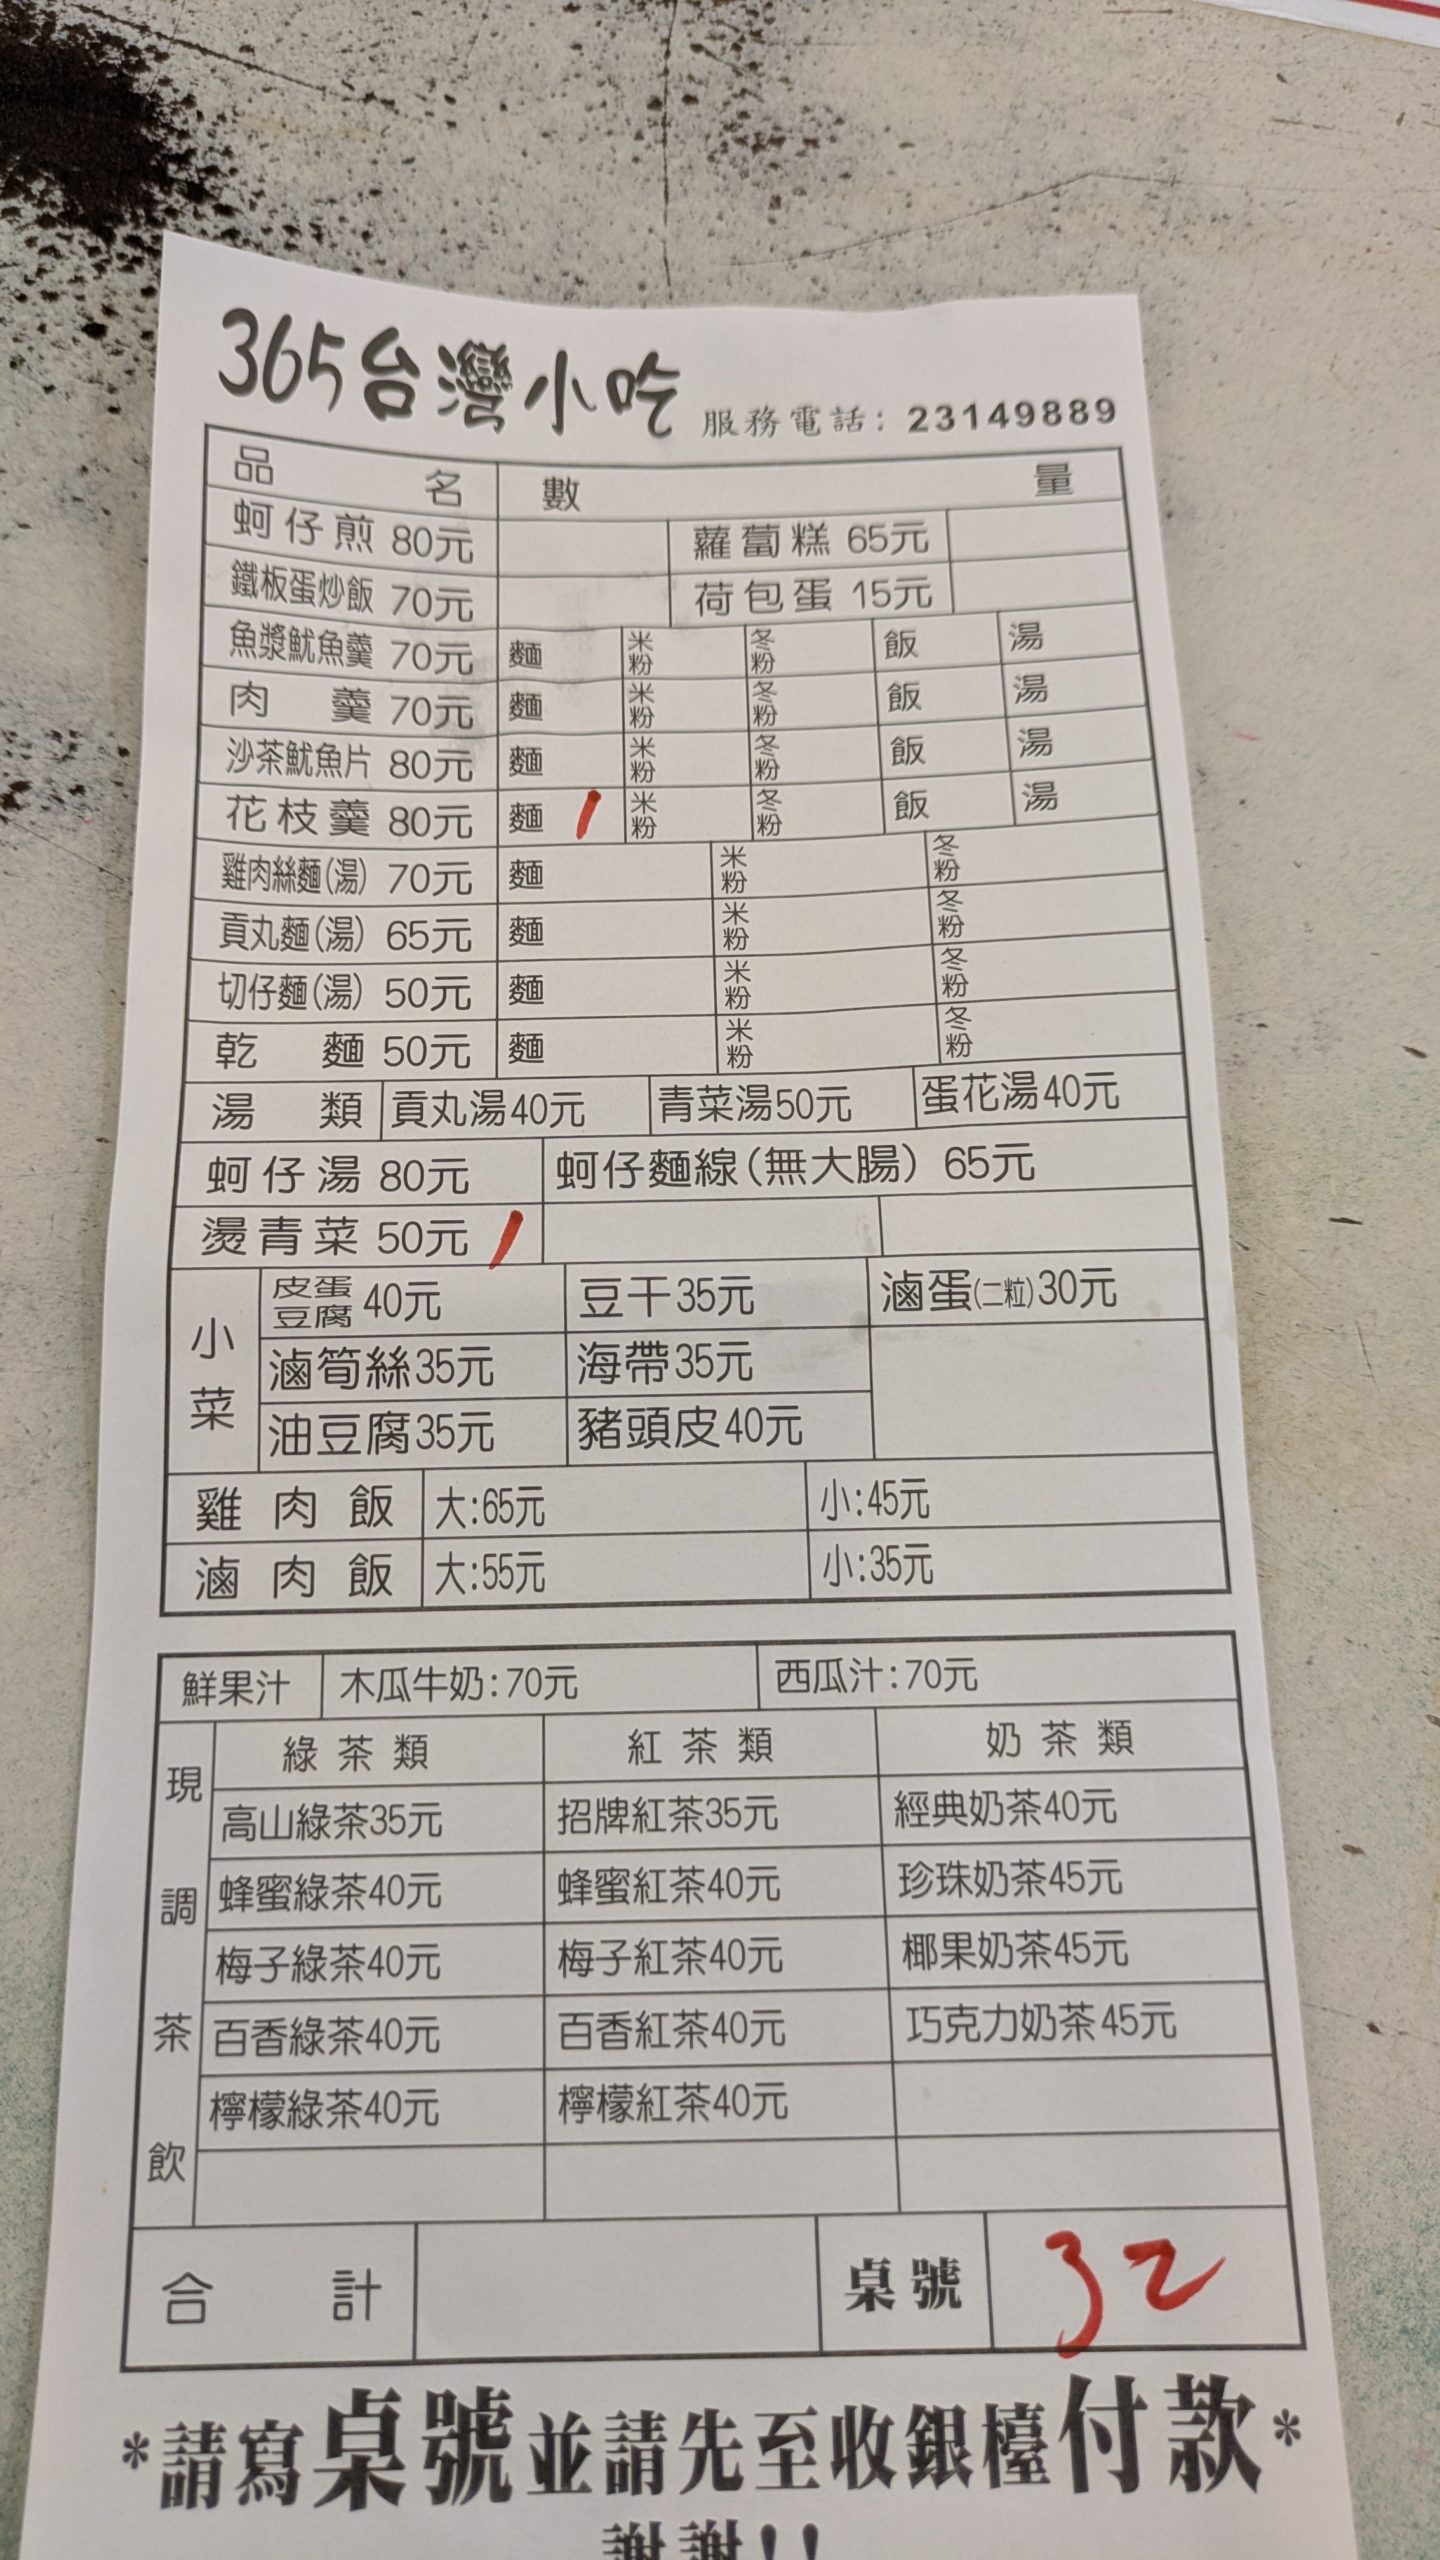 365台灣小吃 服務電話：23149889
品名 數量
蚵仔煎 80元 蘿蔔糕 65元
鐵板蛋炒飯 70元 荷包蛋 15元
魚漿魷魚羹 70元 麵 米粉 冬粉 飯 湯
肉羹 70元 麵 米粉 冬粉 飯 湯
沙茶魷魚片 80元 麵 米粉 冬粉 飯 湯
花枝羹 80元 麵 / 米粉 冬粉 飯 湯
雞肉絲麵(湯) 70元 麵 米粉 冬粉
貢丸麵(湯) 65元 麵 米粉 冬粉
切仔麵(湯) 50元 麵 米粉 冬粉
乾麵 50元 麵 米粉 冬粉
湯類 貢丸湯40元 青菜湯50元 蛋花湯40元
蚵仔湯 80元 蚵仔麵線(無大腸) 65元
燙青菜 50元 /
小菜 皮蛋豆腐 40元 豆干35元 滷蛋(二粒)30元
滷筍絲35元 海帶35元
油豆腐35元 豬頭皮40元
雞肉飯 大:65元 小:45元
滷肉飯 大:55元 小:35元
鮮果汁 木瓜牛奶:70元 西瓜汁:70元
現調茶飲 綠茶類 紅茶類 奶茶類
高山綠茶35元 招牌紅茶35元 經典奶茶40元
蜂蜜綠茶40元 蜂蜜紅茶40元 珍珠奶茶45元
梅子綠茶40元 梅子紅茶40元 椰果奶茶45元
百香綠茶40元 百香紅茶40元 巧克力奶茶45元
檸檬綠茶40元 檸檬紅茶40元
合計 桌號 32
*請寫桌號並請先至收銀檯付款*
謝謝!!